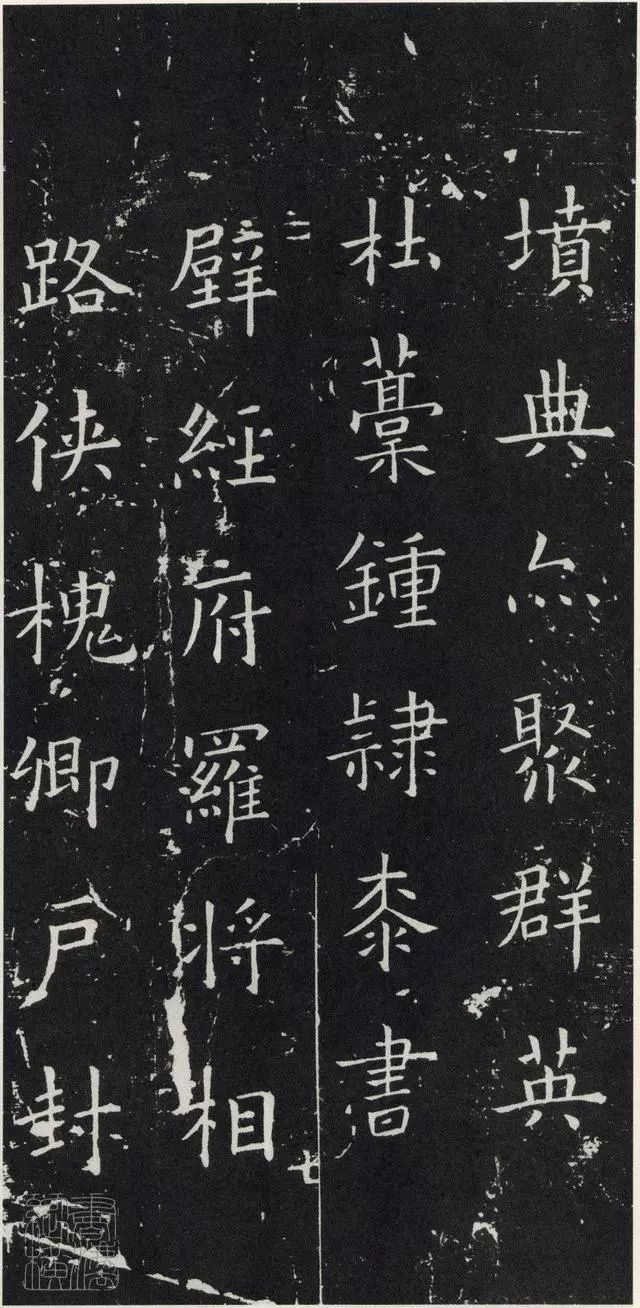 墳典亦聚群英
杜藁鍾隸桼書
二
壁經府羅将相
七
路侠槐卿户封